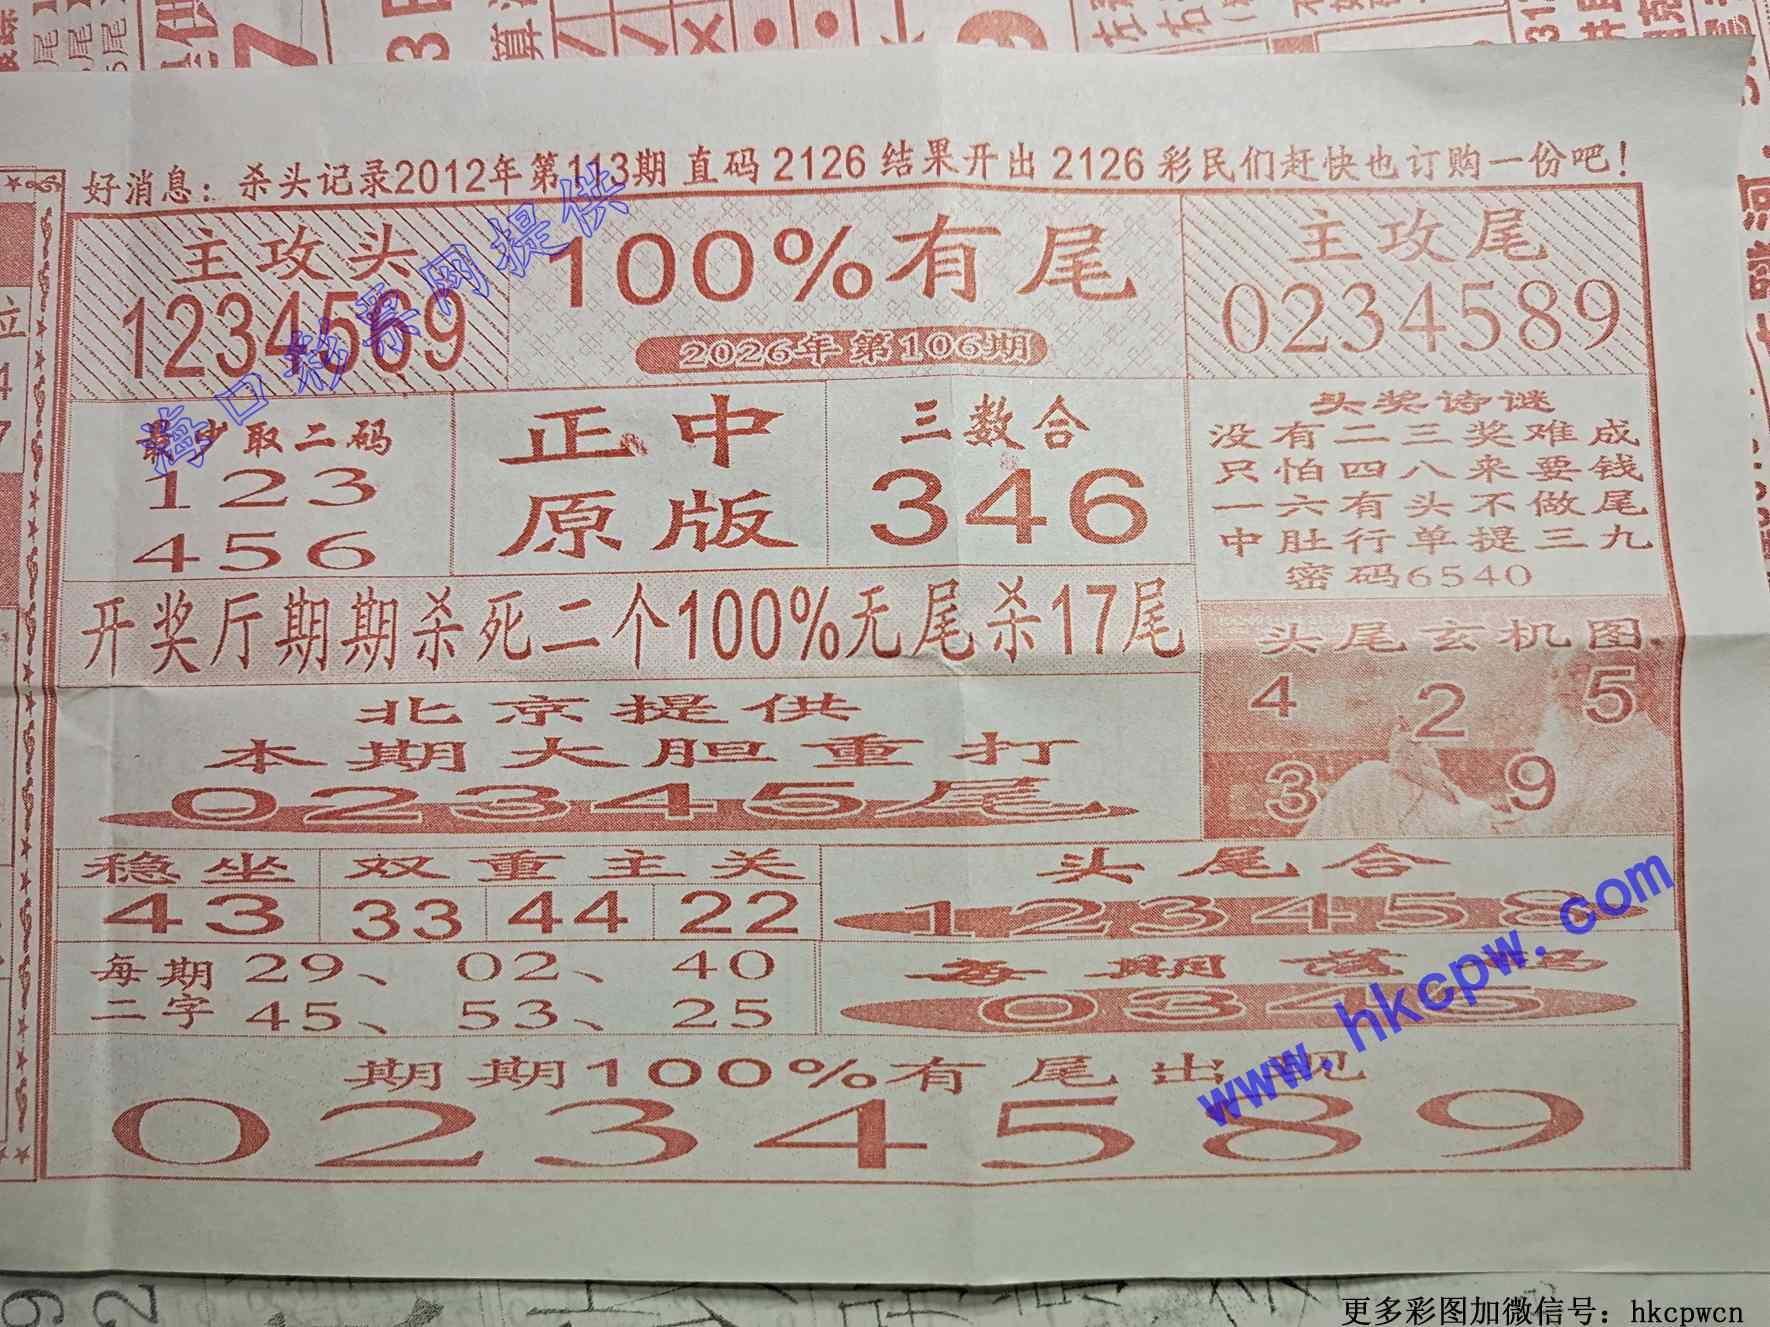 好消息：杀头记录2012年第113期 直码 2126 结果开出 2126 彩民们赶快也订购一份吧！
主攻头
1234569
100%有尾
2026年第106期
主攻尾
0234589
最少取二码
123
456
正中
原版
三数合
346
头奖诗谜
没有二三奖难成
只怕四八来要钱
一六有头不做尾
中肚行单提三九
密码6540
开奖厅期期杀死二个100%无尾杀17尾
头尾玄机图
4 2 5
3 9
北京提供
本期大胆重打
02345尾
稳坐
43
双重主关
33 44 22
头尾合
123458
每期
二字
29、02、40
45、53、25
每期
0345
期期100%有尾出现
0234589
海口彩票网提供
www.hkcpw.com
更多彩图加微信号：hkcpwcn